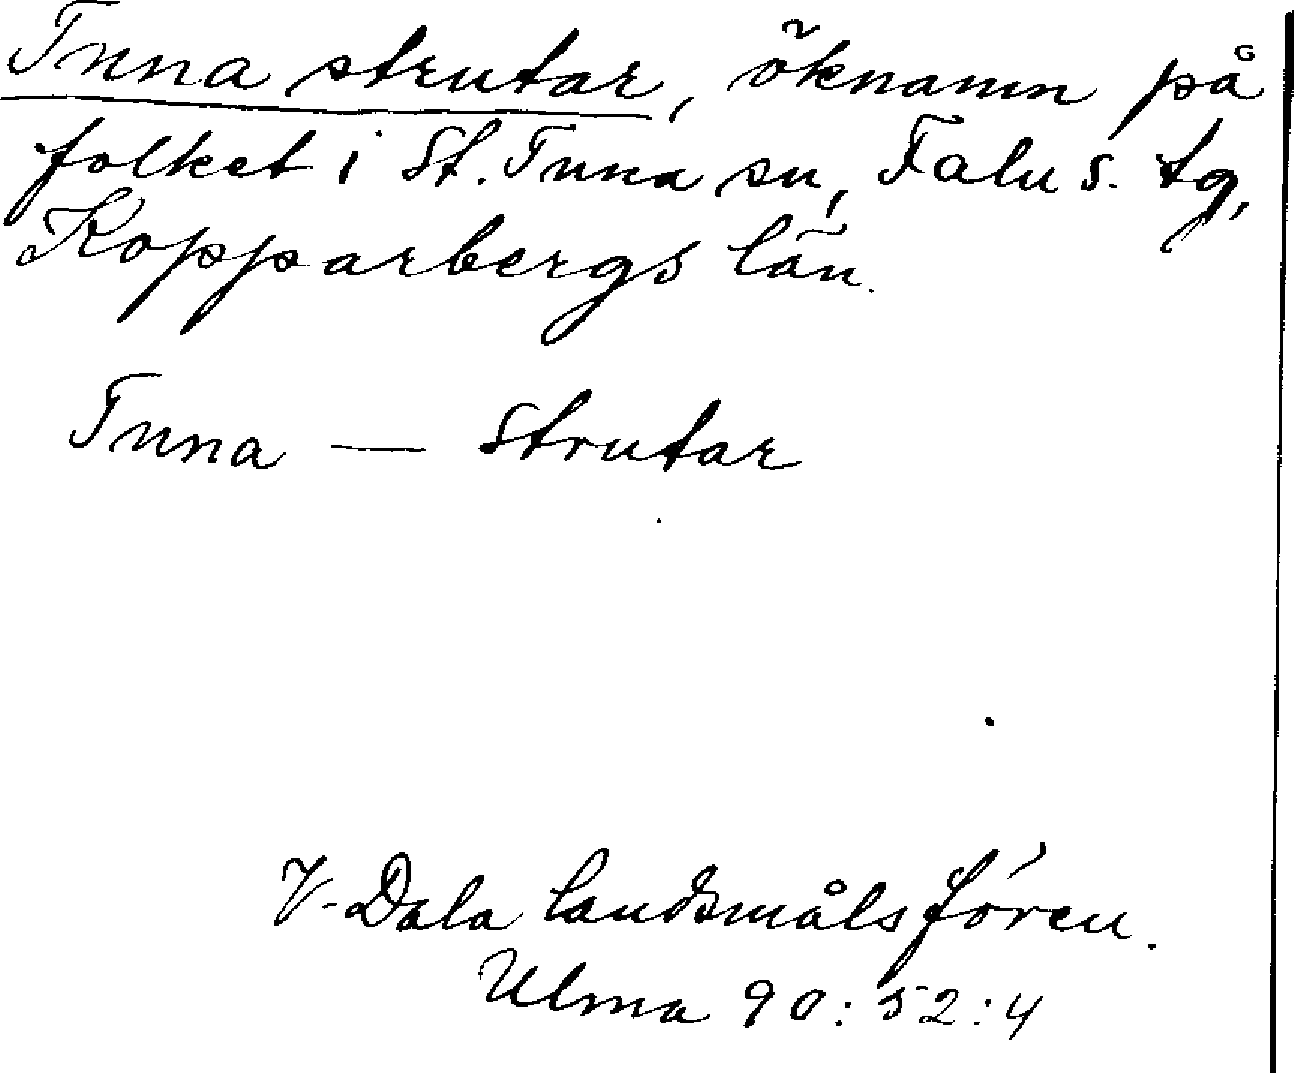 Tuna strutar, öknamn på
folket i St. Tuna sn, Falu s. tg,
Kopparbergs län.
Tuna — Strutar
V-Dala landsmålsfören.
Ulma 90:52:4